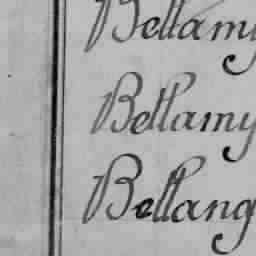 Bellamy
Bellamy
Bellang